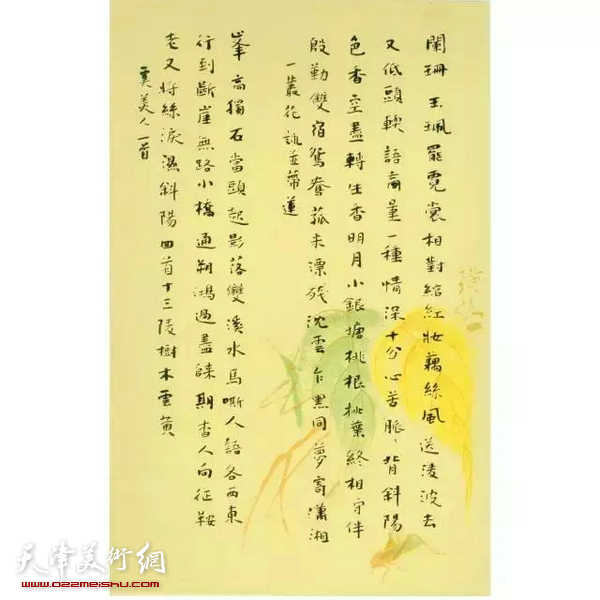 闌珊玉珮罷霓裳相對綰紅妝藕絲風送淩波去
又低頭輭語商量一種情深十分心苦脈、背斜陽
色香空盡轉生香明月小銀塘桃根桃葉終相守伴
殷勤雙宿鴛鴦菰米漂殘沈雲乍黑同夢寄瀟湘
一叢花詠並蒂蓮
峯高獨石當頭起影落雙溪水馬嘶人語各西東
行到斷崖無路小橋通朔鴻過盡歸期杳人向征鞍
老又將絲淚濕斜陽回首十三陵樹木雲黃
虞美人一首
天津美術網
www.022meishu.com